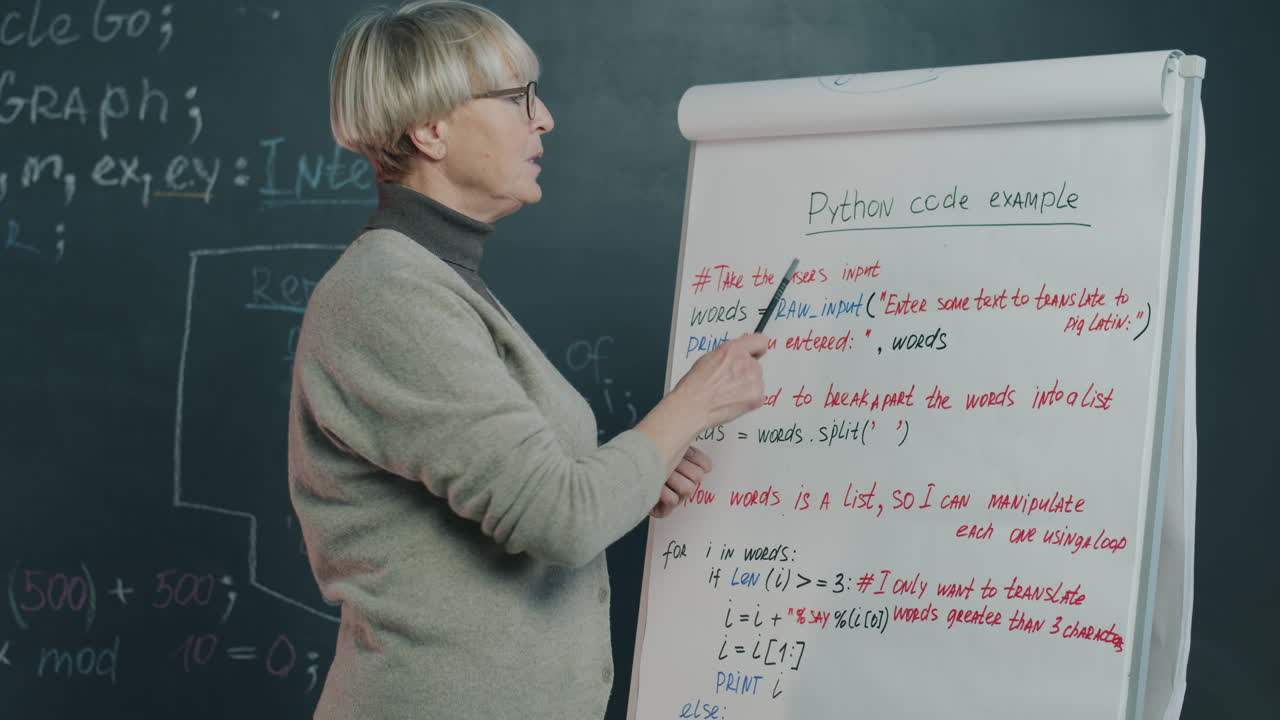 cle Go;
GRAPh;
, m, ex, ey : Inte
R ;
Re
of
i;
(500) + 500;
mod 10 = 0;
Python code example
# Take the users input
words = RAW_input ("Enter some text to translate to
pig latin:")
print entered: ", words
to break apart the words into a list
= words.split(' ')
Now words is a list, so I can manipulate
each one using a loop
for i in words:
if Len (i) >= 3: # I only want to translate
i = i + "%say %(i[0]) words greater than 3 characters
i = i[1:]
PRINT i
else: